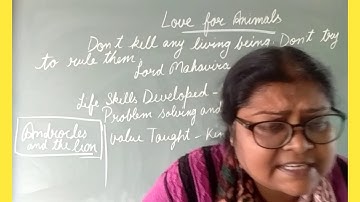 Love for Animals
Don't kill any living being. Don't try
to rule them
Lord Mahavira
Life Skills Developed -
Problem solving and
Value Taught -
Androcles
and the Lion